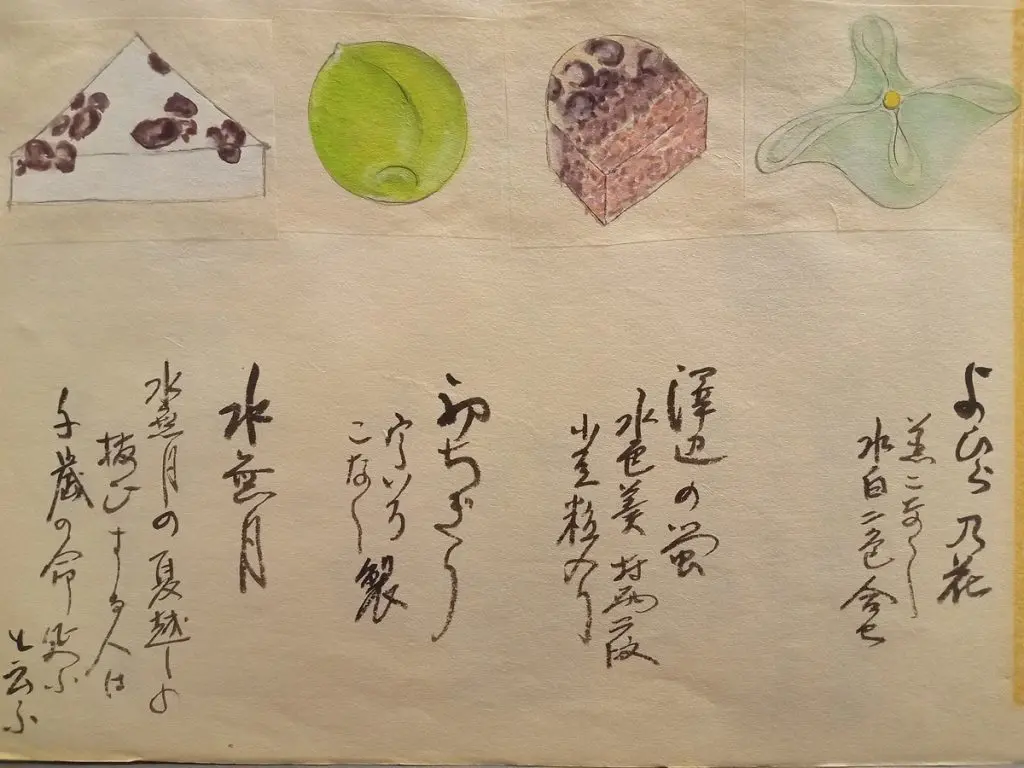 よひら乃花
こなし
水白二色合せ
澤辺の蛍
水色羹 村雨二段
小豆粒入り
初ちぎり
こなし製
水無月
水無月の夏越しの
祓ひする人は
千歳の命延ふ
と云ふ